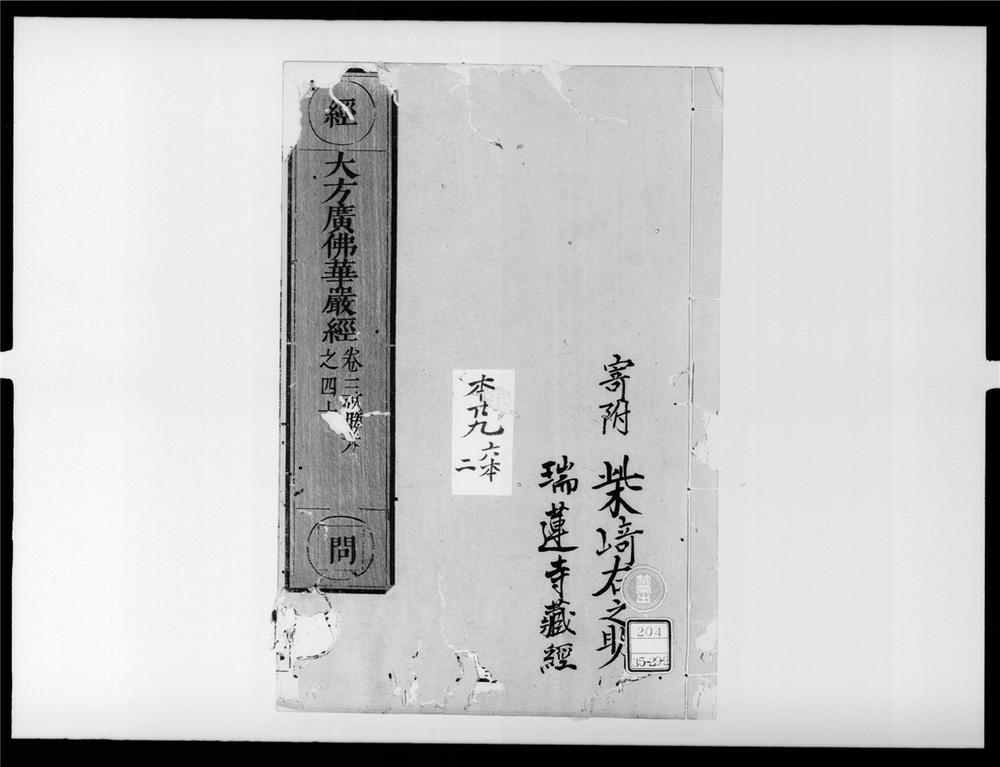 寄附 柴﨑右之
瑞蓮寺藏經
禁帶出
204
本 九 六本
二
經
大方廣佛華嚴經 卷三
之四十
問